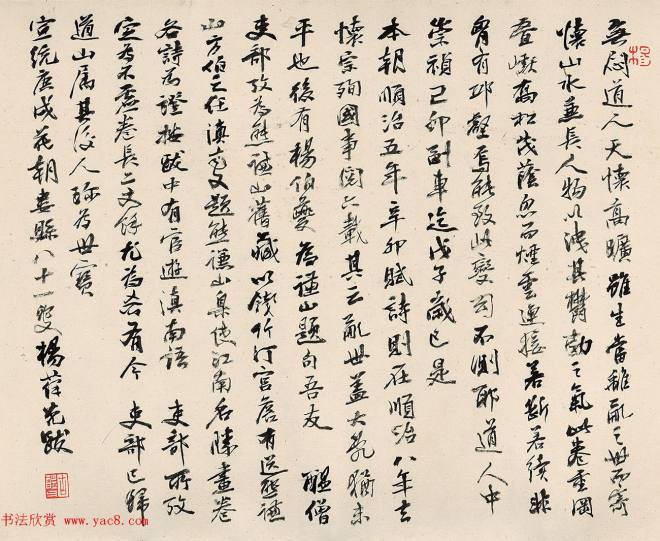 無悶道人天懷高曠雖生當離亂之世而寄
懷山水兼長人物以洩其鬱勃之氣此卷重岡
疊巘喬松茂蔭忽而煙雲連接若斷若續非
胸有邱壑焉能致此變幻不測耶道人中
崇禎己卯副車迄戊子歲已是
本朝順治五年辛卯賦詩則在順治八年去
懷宗殉國事閱六載其云亂世蓋大亂猶未
平也後有楊伯夔為謙山題句吾友 醞僧
吏部攷為熊謙山舊藏以錢竹汀宮詹有送熊謙
山方伯之任滇南又題熊謙山臬使江南名勝畫卷
各詩為證按跋中有官遊滇南語 吏部所攷
定為不虛卷長二丈餘尤為希有今 吏部已歸
道山屬其後人珍為世寶
宣統庚戌花朝婁縣八十一叟楊葆光跋
书法欣赏 www.yac8.com